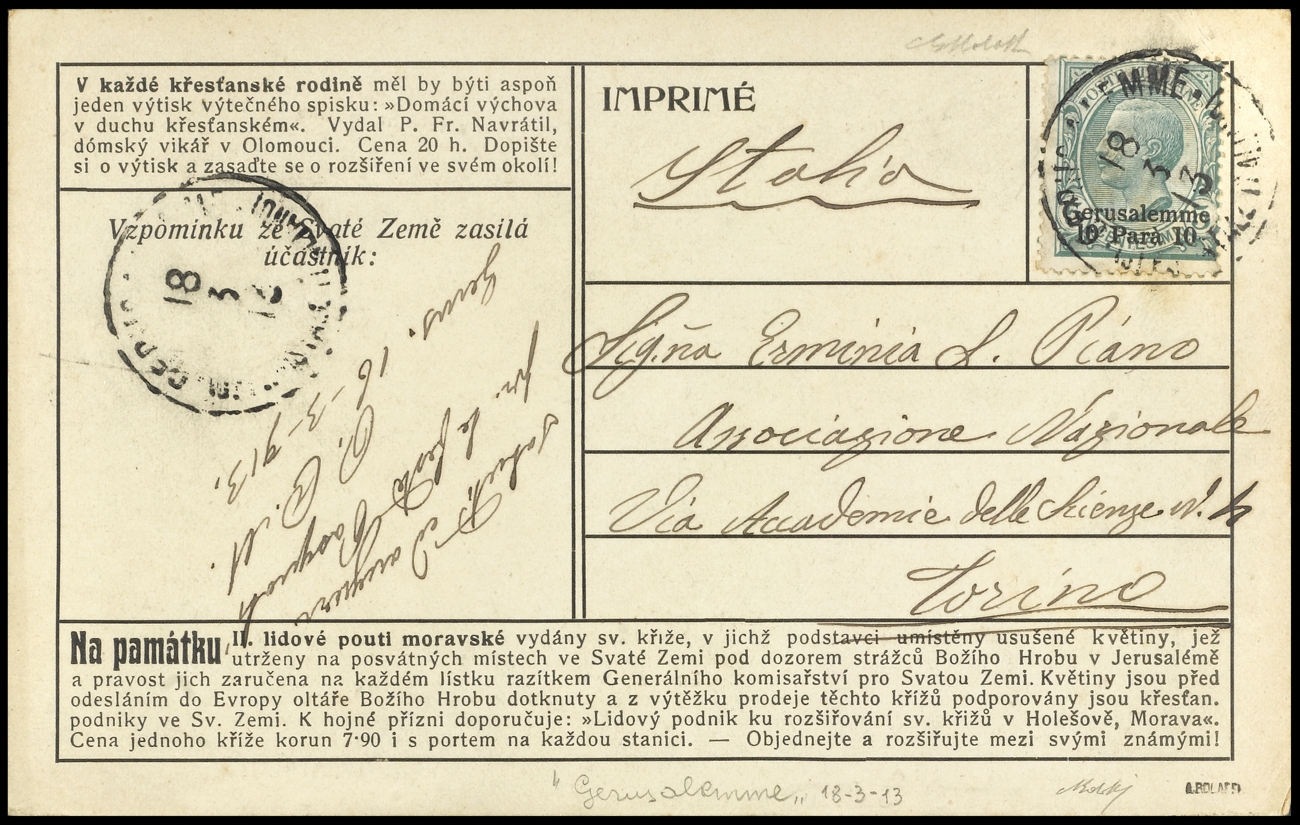 V každé křesťanské rodině měl by býti aspoň
jeden výtisk výtečného spisku: »Domácí výchova
v duchu křesťanském«. Vydal P. Fr. Navrátil,
dómský vikář v Olomouci. Cena 20 h. Dopište
si o výtisk a zasaďte se o rozšíření ve svém okolí!
Vzpomínku ze Svaté Země zasílá
účastník:
18
3
Gerus.
16-3-913.
IMPRIMÉ
Italia
Gerusalemme
10 Parà 10
18
3
13
Sig.na Erminia L. Piano
Associazione Nazionale
Via Accademie delle Scienze N. 4
Torino
Na památku II. lidové pouti moravské vydány sv. kříže, v jichž podstavci umístěny usušené květiny, jež
utrženy na posvátných místech ve Svaté Zemi pod dozorem strážců Božího Hrobu v Jerusalémě
a pravost jich zaručena na každém lístku razítkem Generálního komisařství pro Svatou Zemi. Květiny jsou před
odesláním do Evropy oltáře Božího Hrobu dotknuty a z výtěžku prodeje těchto křížů podporovány jsou křesťan.
podniky ve Sv. Zemi. K hojné přízni doporučuje: »Lidový podnik ku rozšiřování sv. křížů v Holešově, Morava«.
Cena jednoho kříže korun 7·90 i s portem na každou stanici. — Objednejte a rozšiřujte mezi svými známými!
"Gerusalemme„ 18-3-13